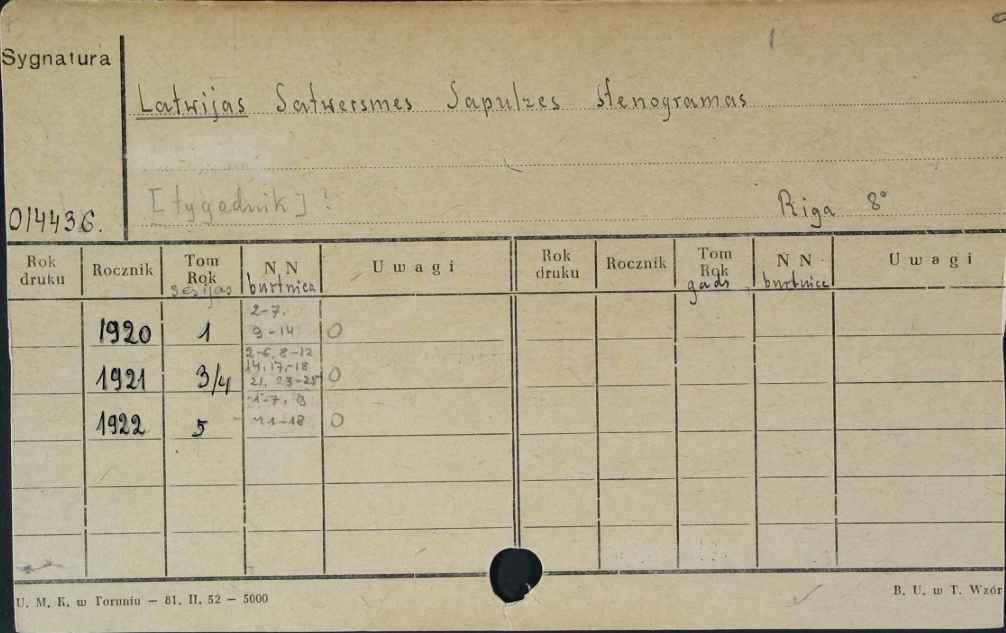 Sygnatura
Latwijas Satwersmes Sapulzes stenogramas
[tygodnik]?
Riga 8°
0/4436.
Rok druku Rocznik Tom Rok sesijas N N burtnica Uwagi Rok druku Rocznik Tom Rok gads N N burtnice Uwagi
1920 1 2-7. 9-14 0
1921 3/4 2-6, 8-12 14, 17,-18 21, 23-25 0
1922 5 1-7, 9 11-18 0
U. M. K. w Toruniu — 81. II. 52 — 5000
B. U. w T. Wzór